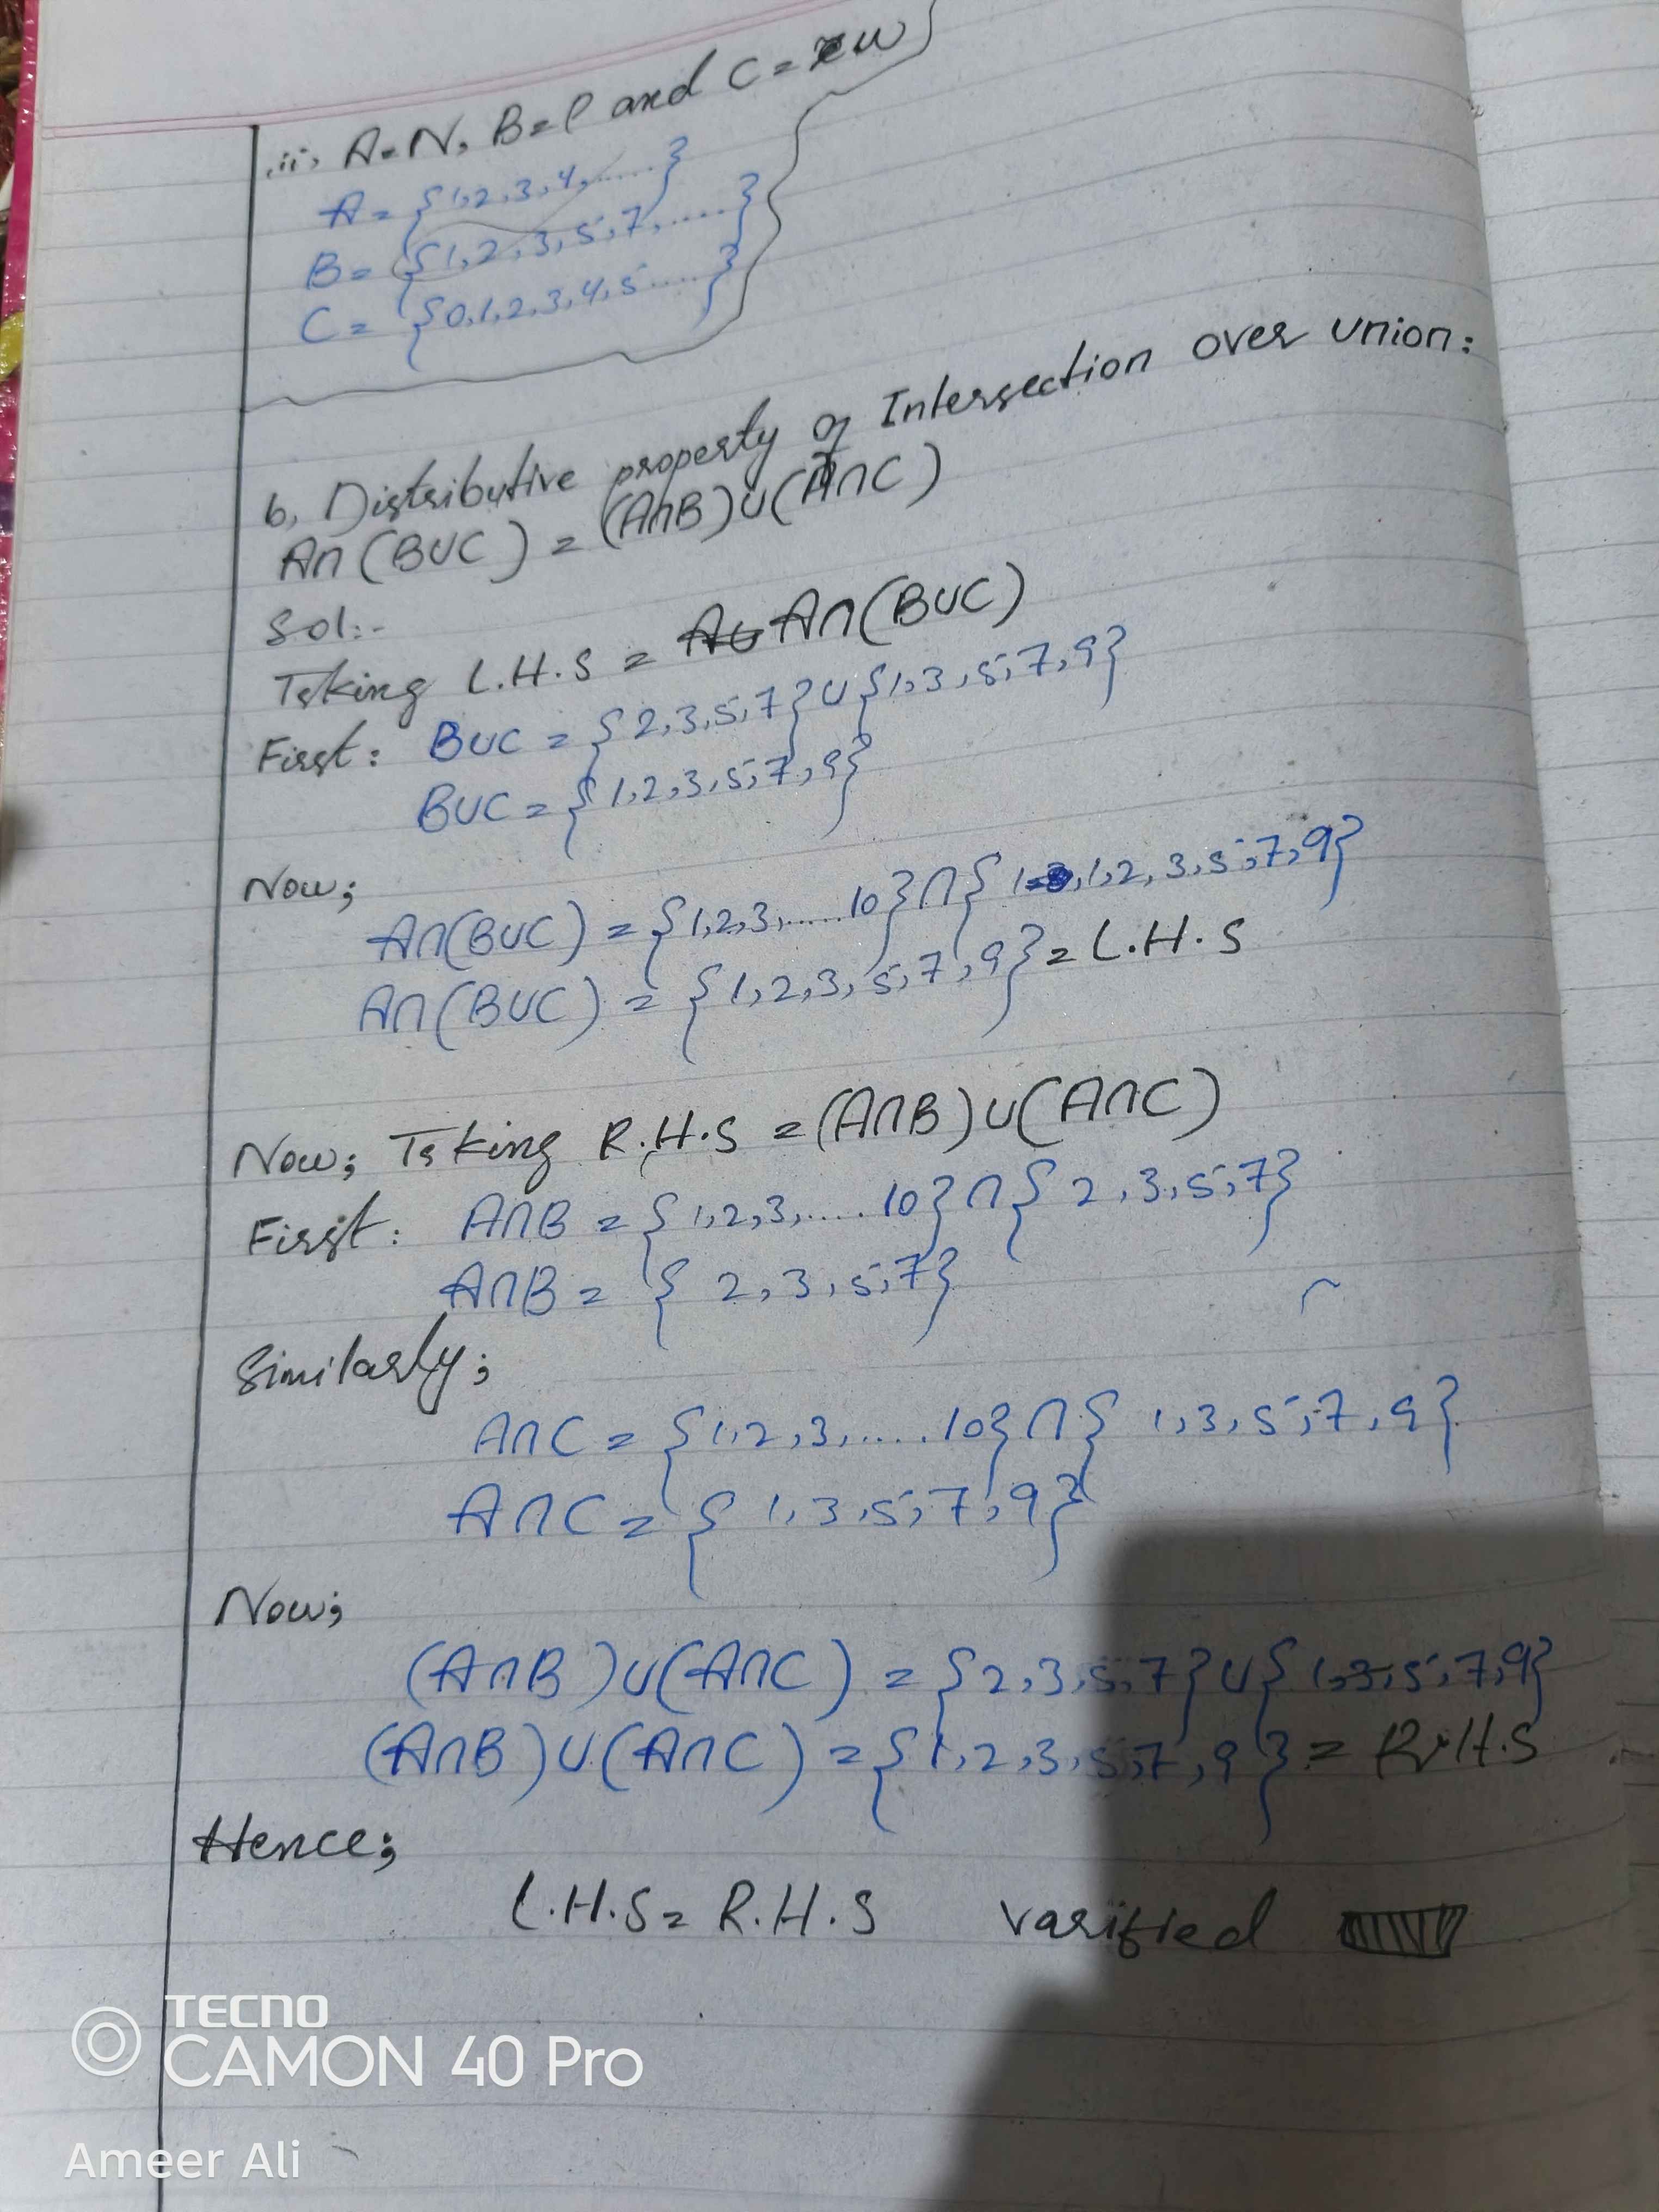 ii, A=N, B=P and C=W
A = {1,2,3,4,......}
B = {1,2,3,5,7,......}
C = {0,1,2,3,4,5.....}
b, Distributive property of Intersection over union:
A∩(B∪C) = (A∩B)∪(A∩C)
Sol:-
Taking L.H.S = A∪ A∩(B∪C)
First: B∪C = {2,3,5,7}∪{1,3,5,7,9}
B∪C = {1,2,3,5,7,9}
Now;
A∩(B∪C) = {1,2,3,.....10}∩{1,2,3,5,7,9}
A∩(B∪C) = {1,2,3,5,7,9} = L.H.S
Now; Taking R.H.S = (A∩B)∪(A∩C)
First: A∩B = {1,2,3,.....10}∩{2,3,5,7}
A∩B = {2,3,5,7}
Similarly;
A∩C = {1,2,3,.....10}∩{1,3,5,7,9}
A∩C = {1,3,5,7,9}
Now;
(A∩B)∪(A∩C) = {2,3,5,7}∪{1,3,5,7,9}
(A∩B)∪(A∩C) = {1,2,3,5,7,9} = R.H.S
Hence;
L.H.S = R.H.S varified
TECNO
CAMON 40 Pro
Ameer Ali